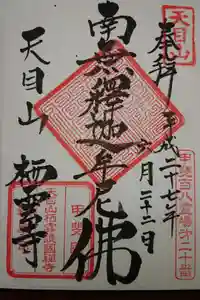 奉拝
平成二十七年
六月二十二日
天目山
甲斐百八霊場第二十番
南無釋迦牟尼佛
天目山
栖雲寺
甲斐国
天目山栖雲護国禅寺